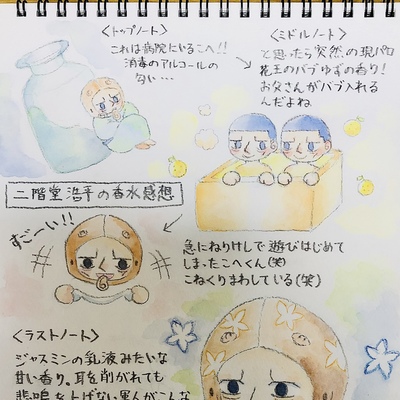 〈トップノート〉
これは病院にいるこへ!!
消毒のアルコールの
匂い…
〈ミドルノート〉
と思ったら突然の現パロ
花王のバブゆずの香り!
お父さんがバブ入れる
んだよね
二階堂浩平の香水感想
すごーい!!
急にねりけしで遊びはじめて
しまったこへくん(笑)
こねくりまわしている(笑)
〈ラストノート〉
ジャスミンの乳液みたいな
甘い香り。耳を削がれても
悲鳴を上げない男がこんな